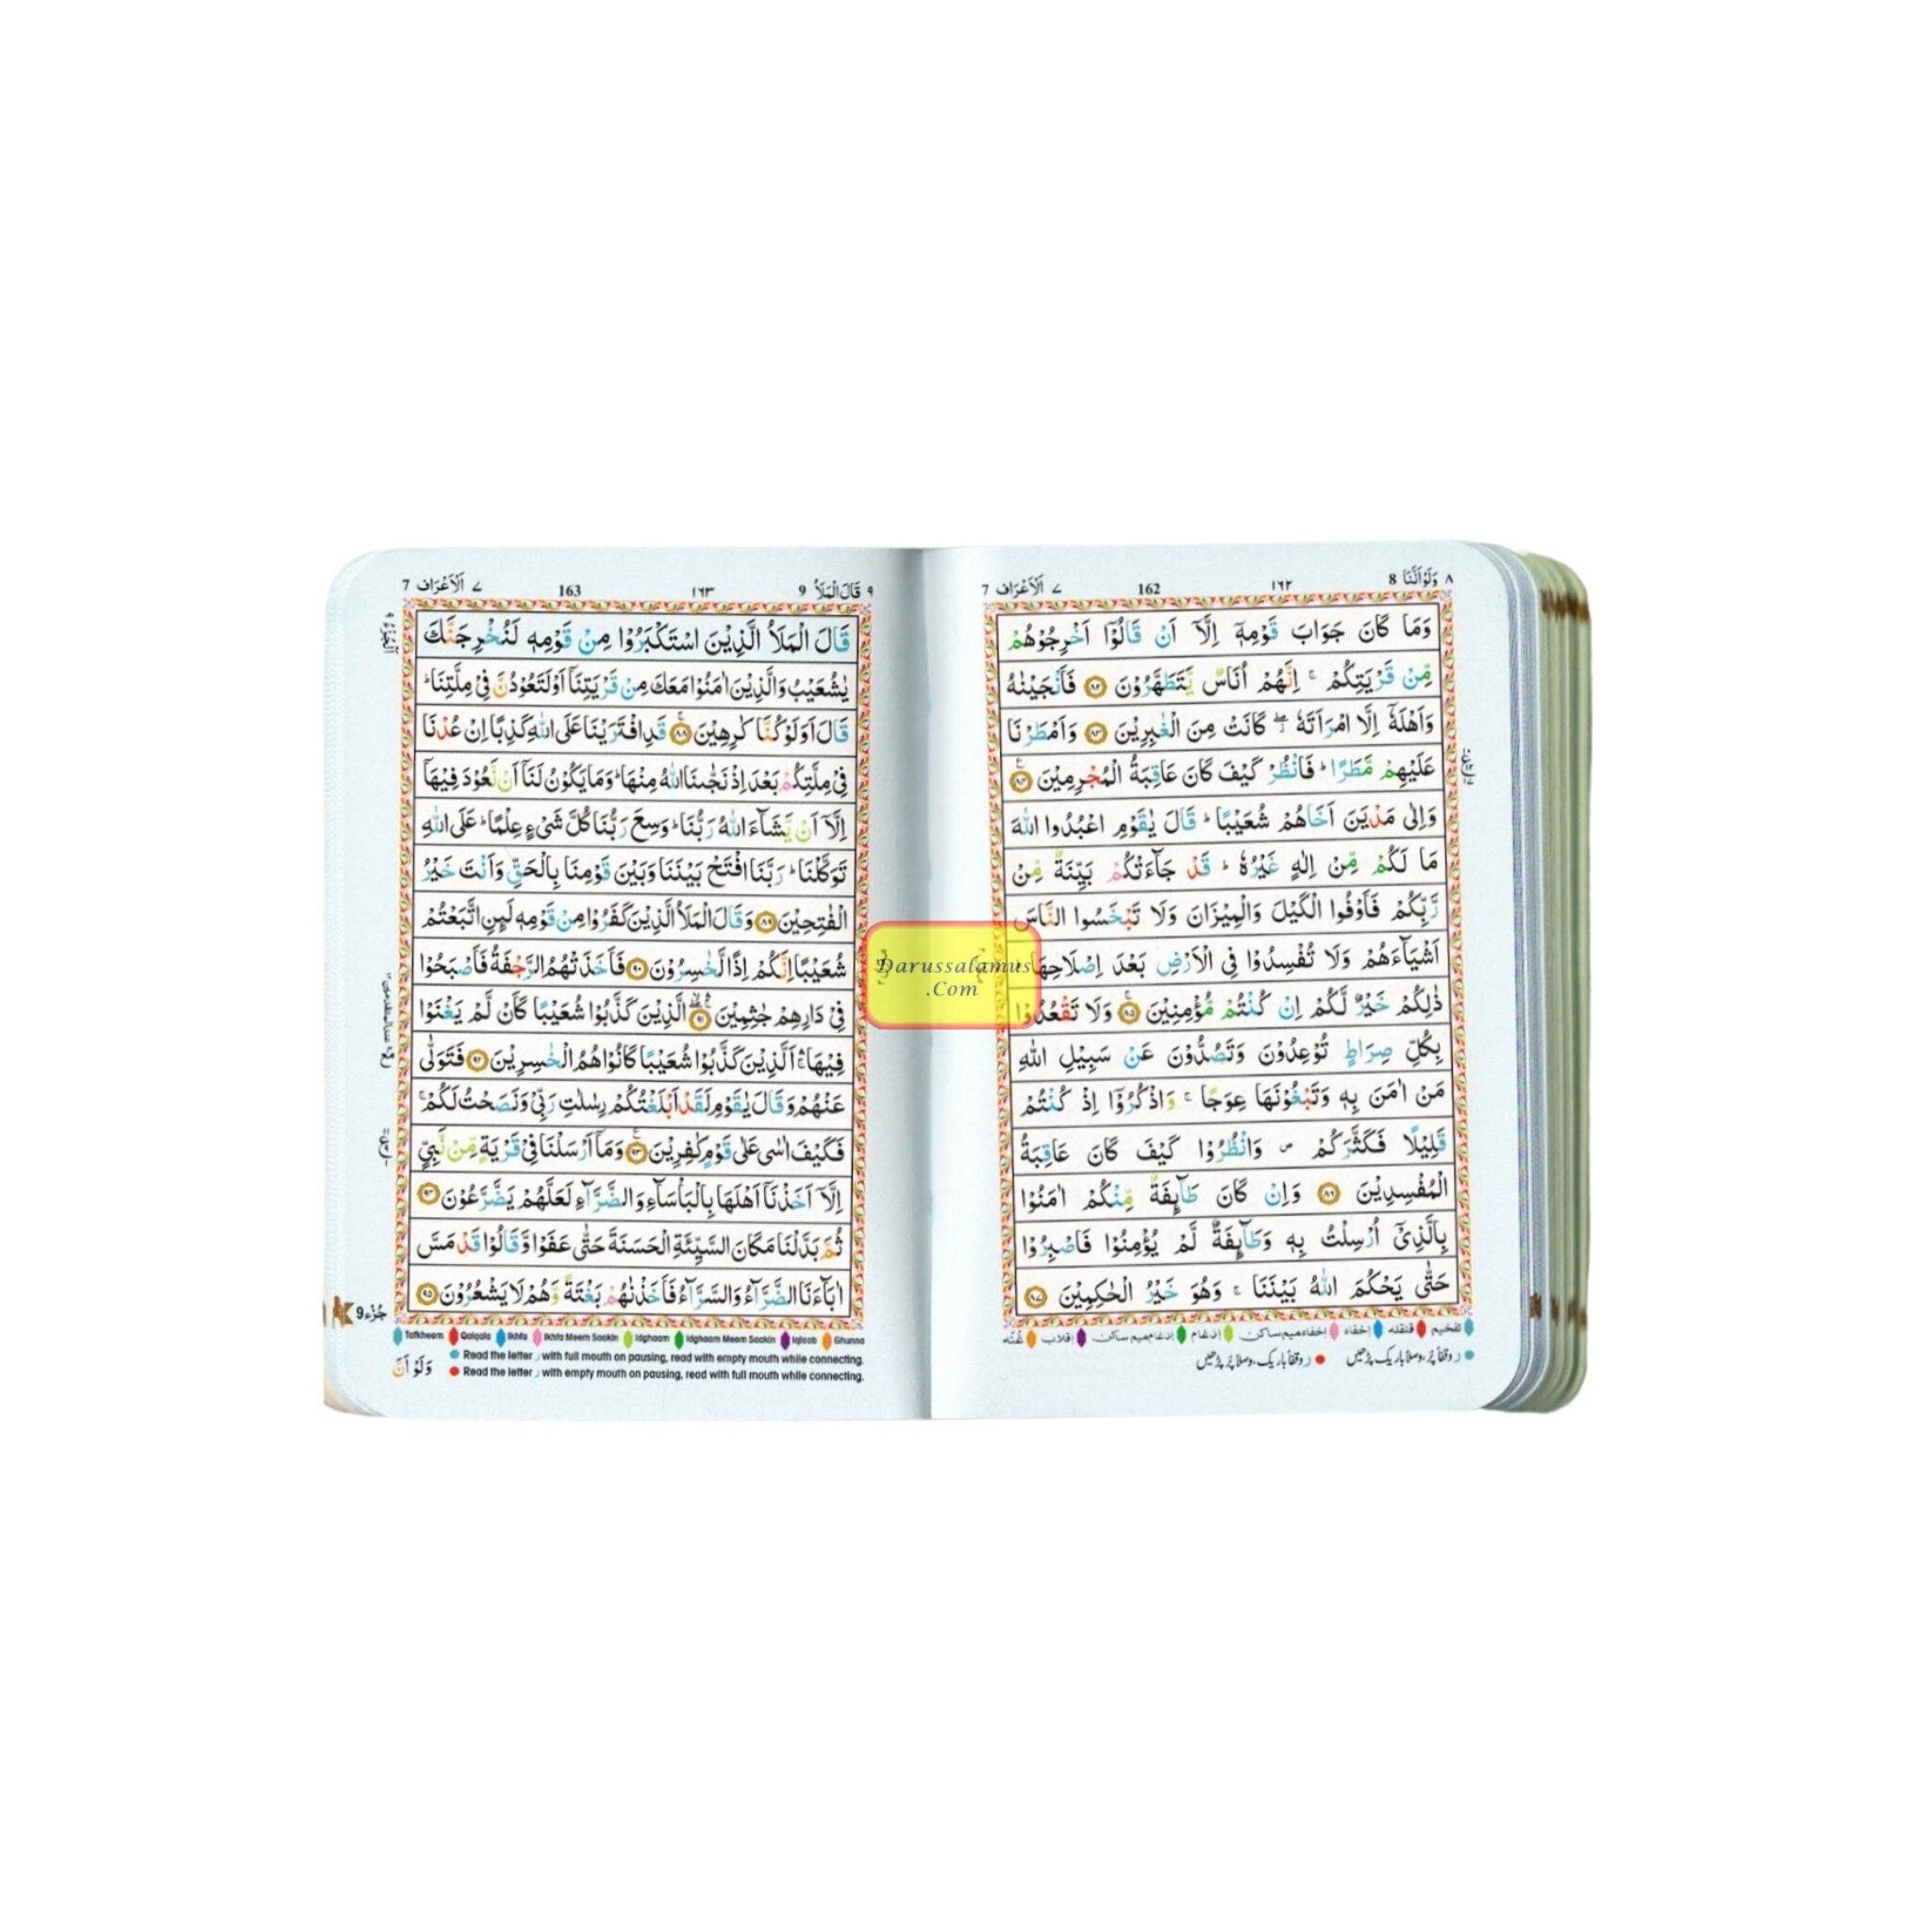 ٨ وَلَوۡاَنَّنَا 8 ١٦٢ 162 ٧ اَلۡاَعۡرَاف 7
وَمَا كَانَ جَوَابَ قَوۡمِهٖۤ اِلَّاۤ اَنۡ قَالُوۡۤا اَخۡرِجُوۡهُمۡ
مِّنۡ قَرۡيَتِكُمۡ ۚ اِنَّهُمۡ اُنَاسٌ يَّتَطَهَّرُوۡنَ ﴿۸۲﴾ فَاَنۡجَيۡنٰهُ
وَاَهۡلَهٗۤ اِلَّا امۡرَاَتَهٗ ۖ كَانَتۡ مِنَ الۡغٰبِرِيۡنَ ﴿۸۳﴾ وَاَمۡطَرۡنَا
عَلَيۡهِمۡ مَّطَرًا ؕ فَانْظُرۡ كَيۡفَ كَانَ عَاقِبَةُ الۡمُجۡرِمِيۡنَ ﴿۸۴﴾
وَاِلٰى مَدۡيَنَ اَخَاهُمۡ شُعَيۡبًا ؕ قَالَ يٰقَوۡمِ اعۡبُدُوا اللّٰهَ
مَا لَكُمۡ مِّنۡ اِلٰهٍ غَيۡرُهٗ ؕ قَدۡ جَآءَتۡكُمۡ بَيِّنَةٌ مِّنۡ
رَّبِّكُمۡ فَاَوۡفُوا الۡكَيۡلَ وَالۡمِيۡزَانَ وَلَا تَبۡخَسُوا النَّاسَ
اَشۡيَآءَهُمۡ وَلَا تُفۡسِدُوۡا فِى الۡاَرۡضِ بَعۡدَ اِصۡلَاحِهَا
ذٰلِكُمۡ خَيۡرٌ لَّكُمۡ اِنۡ كُنۡتُمۡ مُّؤۡمِنِيۡنَ ﴿۸۵﴾ وَلَا تَقۡعُدُوۡا
بِكُلِّ صِرَاطٍ تُوۡعِدُوۡنَ وَتَصُدُّوۡنَ عَنۡ سَبِيۡلِ اللّٰهِ
مَنۡ اٰمَنَ بِهٖ وَتَبۡغُوۡنَهَا عِوَجًا ۚ وَاذۡكُرُوۡۤا اِذۡ كُنۡتُمۡ
قَلِيۡلًا فَكَثَّرَكُمۡ ۪ وَانْظُرُوۡا كَيۡفَ كَانَ عَاقِبَةُ
الۡمُفۡسِدِيۡنَ ﴿۸۶﴾ وَاِنۡ كَانَ طَآٮِٕفَةٌ مِّنۡكُمۡ اٰمَنُوۡا
بِالَّذِىۡۤ اُرۡسِلۡتُ بِهٖ وَطَآٮِٕفَةٌ لَّمۡ يُؤۡمِنُوۡا فَاصۡبِرُوۡا
حَتّٰى يَحۡكُمَ اللّٰهُ بَيۡنَنَا ۚ وَهُوَ خَيۡرُ الۡحٰكِمِيۡنَ ﴿۸۷﴾
تفخیم قلقله إخفاء إخفاءمیم ساکن إدغام إدغام میم ساکن إقلاب غُنّه
ر وقفاً پُر، وصلاً باریک پڑھیں ر وقفاً باریک، وصلاً پُر پڑھیں
٩ قَالَ الۡمَلَاُ 9 ١٦٣ 163 ٧ اَلۡاَعۡرَاف 7
قَالَ الۡمَلَاُ الَّذِيۡنَ اسۡتَكۡبَرُوۡا مِنۡ قَوۡمِهٖ لَـنُخۡرِجَنَّكَ
يٰشُعَيۡبُ وَالَّذِيۡنَ اٰمَنُوۡا مَعَكَ مِنۡ قَرۡيَتِنَاۤ اَوۡ لَتَعُوۡدُنَّ فِىۡ مِلَّتِنَا ؕ
قَالَ اَوَلَوۡ كُنَّا كٰرِهِيۡنَ ﴿۸۸﴾ قَدِ افۡتَرَيۡنَا عَلَى اللّٰهِ كَذِبًا اِنۡ عُدۡنَا
فِىۡ مِلَّتِكُمۡ بَعۡدَ اِذۡ نَجّٰٮنَا اللّٰهُ مِنۡهَا ؕ وَمَا يَكُوۡنُ لَـنَاۤ اَنۡ نَّعُوۡدَ فِيۡهَاۤ
اِلَّاۤ اَنۡ يَّشَآءَ اللّٰهُ رَبُّنَا ؕ وَسِعَ رَبُّنَا كُلَّ شَىۡءٍ عِلۡمًا ؕ عَلَى اللّٰهِ
تَوَكَّلۡنَا ؕ رَبَّنَا افۡتَحۡ بَيۡنَنَا وَبَيۡنَ قَوۡمِنَا بِالۡحَـقِّ وَاَنۡتَ خَيۡرُ
الۡفٰتِحِيۡنَ ﴿۸۹﴾ وَقَالَ الۡمَلَاُ الَّذِيۡنَ كَفَرُوۡا مِنۡ قَوۡمِهٖ لَٮِٕنِ اتَّبَعۡتُمۡ
شُعَيۡبًا اِنَّكُمۡ اِذًا لَّخٰسِرُوۡنَ ﴿۹۰﴾ فَاَخَذَتۡهُمُ الرَّجۡفَةُ فَاَصۡبَحُوۡا
فِىۡ دَارِهِمۡ جٰثِمِيۡنَ ﴿۹۱﴾ الَّذِيۡنَ كَذَّبُوۡا شُعَيۡبًا كَاَنۡ لَّمۡ يَغۡنَوۡا
فِيۡهَا ۛۚ اَلَّذِيۡنَ كَذَّبُوۡا شُعَيۡبًا كَانُوۡا هُمُ الۡخٰسِرِيۡنَ ﴿۹۲﴾ فَتَوَلّٰى
عَنۡهُمۡ وَقَالَ يٰقَوۡمِ لَقَدۡ اَبۡلَغۡتُكُمۡ رِسٰلٰتِ رَبِّىۡ وَنَصَحۡتُ لَـكُمۡ ۚ
فَكَيۡفَ اٰسٰى عَلٰى قَوۡمٍ كٰفِرِيۡنَ ﴿۹۳﴾ وَمَاۤ اَرۡسَلۡنَا فِىۡ قَرۡيَةٍ مِّنۡ نَّبِىٍّ
اِلَّاۤ اَخَذۡنَاۤ اَهۡلَهَا بِالۡبَاۡسَآءِ وَالضَّرَّآءِ لَعَلَّهُمۡ يَضَّرَّعُوۡنَ ﴿۹۴﴾
ثُمَّ بَدَّلۡنَا مَكَانَ السَّيِّئَةِ الۡحَسَنَةَ حَتّٰى عَفَوْا وَّقَالُوۡا قَدۡ مَسَّ
اٰبَآءَنَا الضَّرَّآءُ وَالسَّرَّآءُ فَاَخَذۡنٰهُمۡ بَغۡتَةً وَّهُمۡ لَا يَشۡعُرُوۡنَ ﴿۹۵﴾
جُزْء 9
Tafkheem Qalqala Ikhfa Ikhfa Meem Saakin Idghaam Idghaam Meem Saakin Iqlaab Ghunna
Read the letter ر with full mouth on pausing, read with empty mouth while connecting.
Read the letter ر with empty mouth on pausing, read with full mouth while connecting.
Darussalamus
.Com